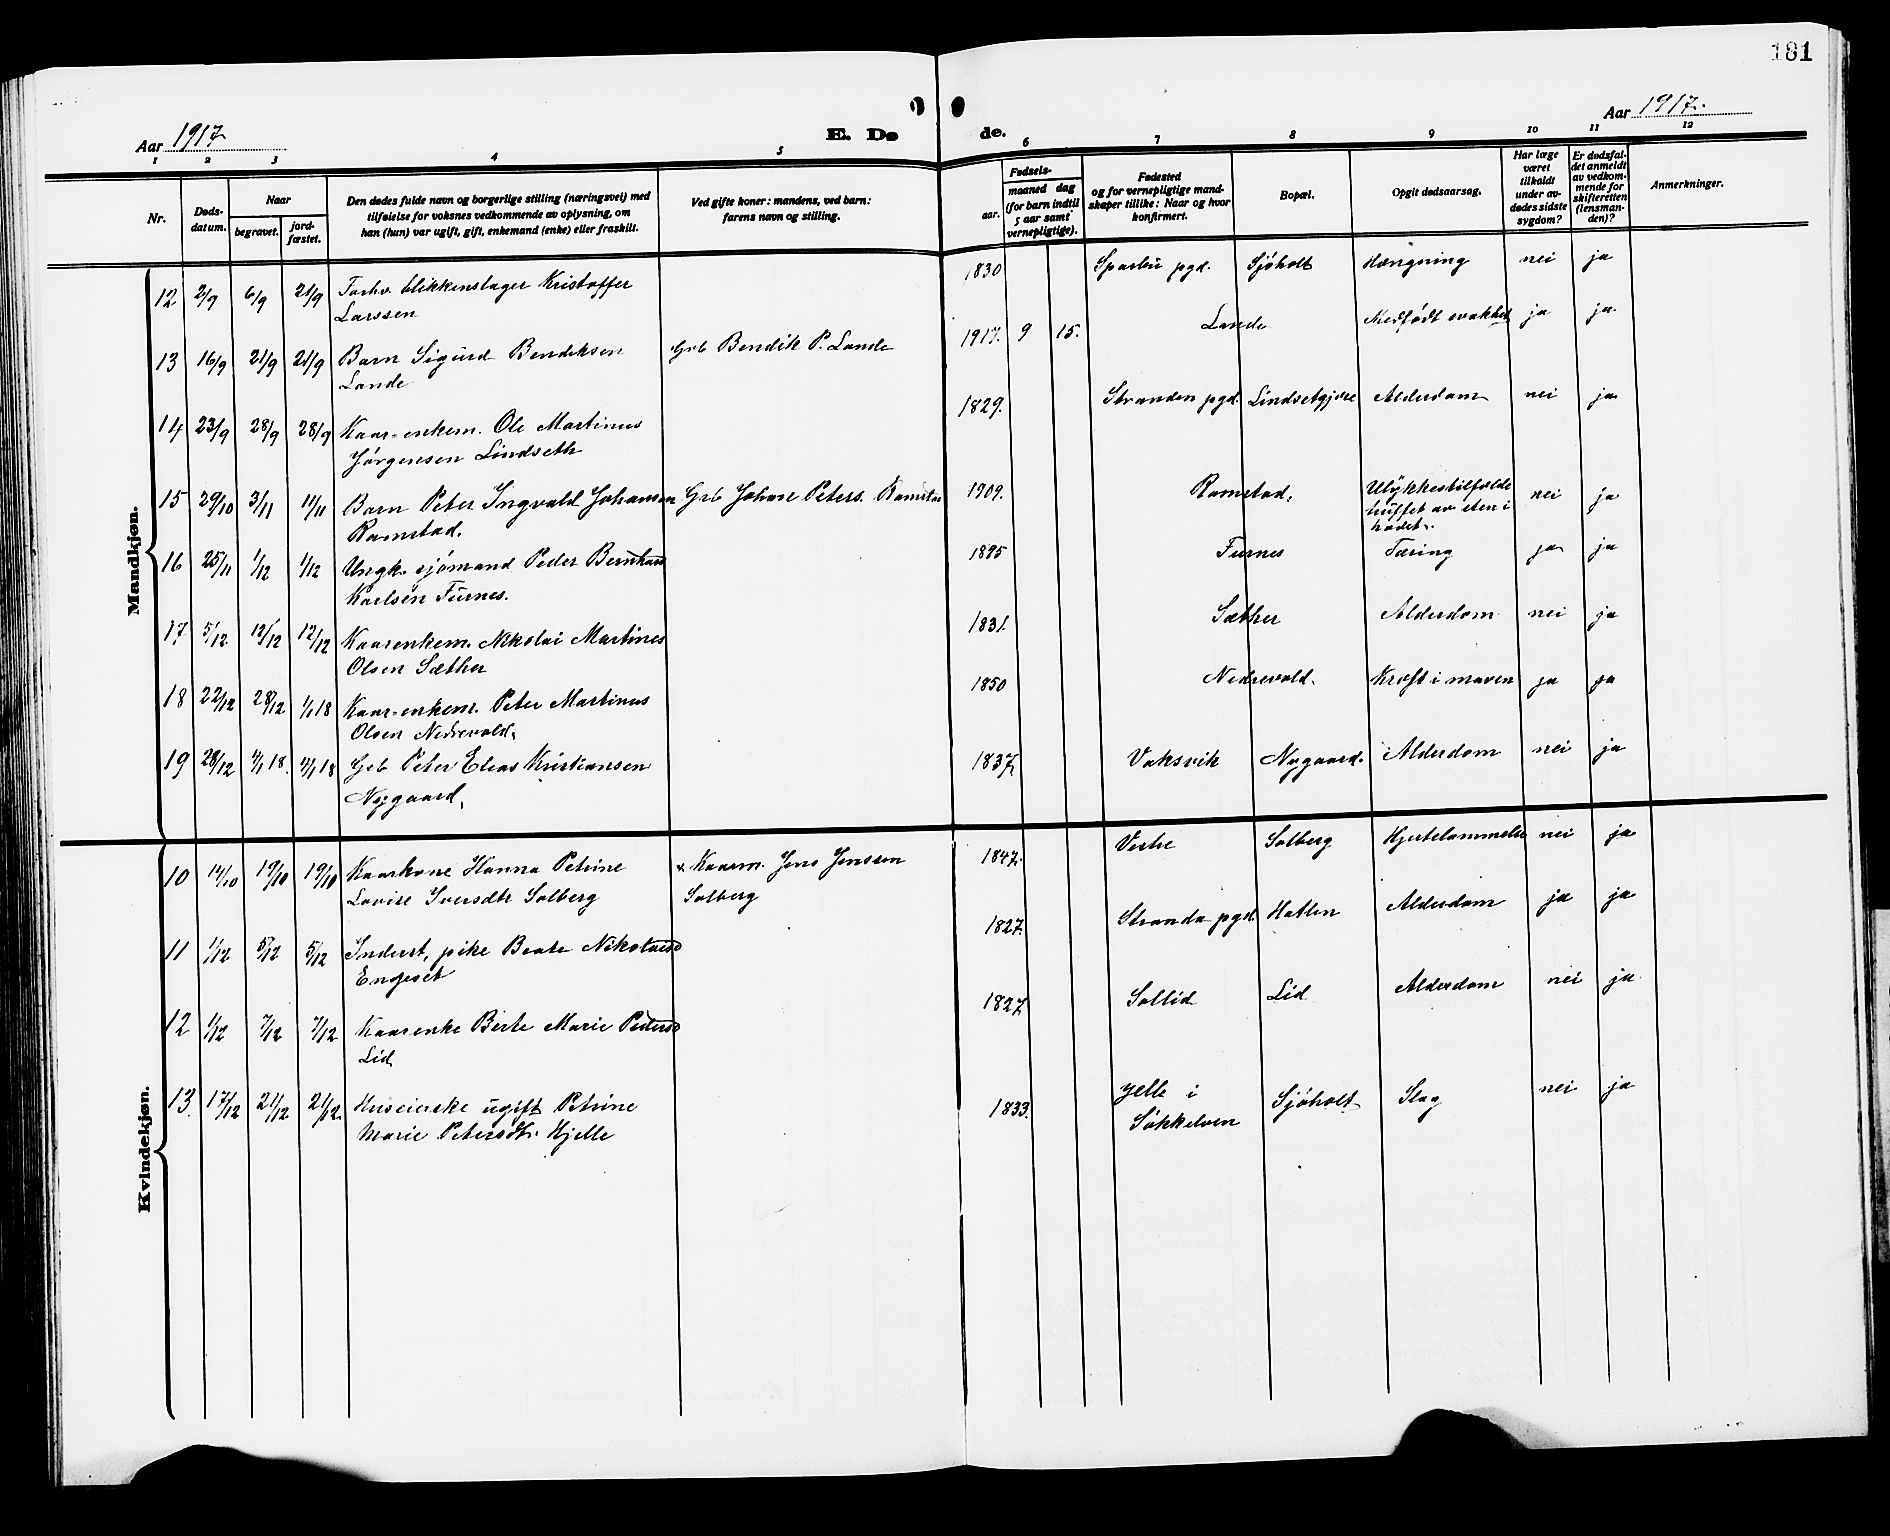 181
Aar 1917. E. Dø de. Aar 1917.
1 2 3 4 5 6 7 8 9 10 11 12
Nr.
Døds-
datum.
Naar
begravet.
jord-
fæstet.
Den dødes fulde navn og borgerlige stilling (næringsvei) med
tilføielse for voksnes vedkommende av oplysning, om
han (hun) var ugift, gift, enkemand (enke) eller fraskilt.
Ved gifte koner: mandens, ved barn:
farens navn og stilling.
Fødsels-
aar.
maaned dag
(for barn indtil
5 aar samt
vernepligtige).
Fødested
og for vernepligtige mand-
skaper tillike: Naar og hvor
konfirmert.
Bopæl.
Opgit dødsaarsag.
Har læge
været
tilkaldt
under av-
dødes sidste
sygdom?
Er dødsfal-
det anmeldt
av vedkom-
mende for
skifteretten
(lensman-
den)?
Anmerkninger.
Mandkjøn.
12 2/9 6/9 21/9 Forhv. blikkenslager Kristoffer 1830 Sparbu pgd. Sjøholt Hængning nei ja
Larssen
13 16/9 21/9 21/9 Barn Sigurd Bendiksen Grb Bendik P. Lande 1917. 9 15. Lande Medfødt svakhet ja ja
Lande
14 23/9 28/9 28/9 Kaar-enkem. Ole Martinus 1829. Stranden pgd. Lindsetgjære Alderdom nei ja
Jørgensen Lindseth
15 29/10 3/11 11/11 Barn Peter Ingvald Johansen Grb Johan Peters. Ramstad 1909. Ramstad. Ulykkestilfælde nei ja
Ramstad. truffet av sten i
hodet.
16 25/11 1/12 1/12 Ungk. sjømand Peder Bernhard 1895 Furnes Tæring ja ja
Karlsen Furnes.
17 5/12 12/12 12/12 Kaarenkem. Nikolai Martines 1831. Sæther Alderdom nei ja
Olsen Sæther
18 22/12 28/12 1/1 18 Kaar-enkem. Peter Martinus 1850 Nedrevold. Kræft i maven ja ja
Olsen Nedrevold.
19 28/12 4/1 18. 4/1 18 Grb Peter Elias Kristiansen 1837. Vaksvik Nygaard. Alderdom nei ja
Nygaard.
Kvindekjøn.
10 14/10 19/10 19/10 Kaarkone Hanna Petrine Kaarm. Jens Jenssen 1847. Vestre Solberg Hjertelammelse nei ja
Lovise Iversdtr Solberg Solberg
11 1/12 5/12 5/12 Inderst, pike Beate Nikolaisd 1827. Stranda pgd. Hatlen Alderdom ja ja
Engeset
12 1/12 7/12 7/12 Kaarenke Berte Marie Pedersd 1827 Sollid Lid Alderdom nei ja
Lid
13. 17/12 21/12 21/12. Huseierske ugift Petrine 1833. Jelle i Sjøholt Slag nei ja
Marie Petersdtr. Hjelle Søkkelven